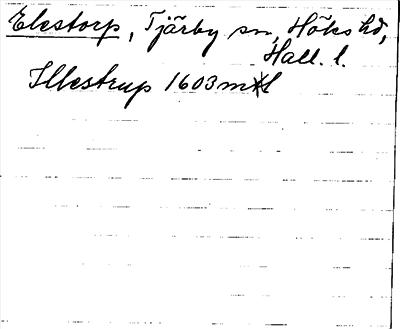 Elestorp, Tjärby sn, Höks hd,
Hall. l.
Illestrup 1603 mtl